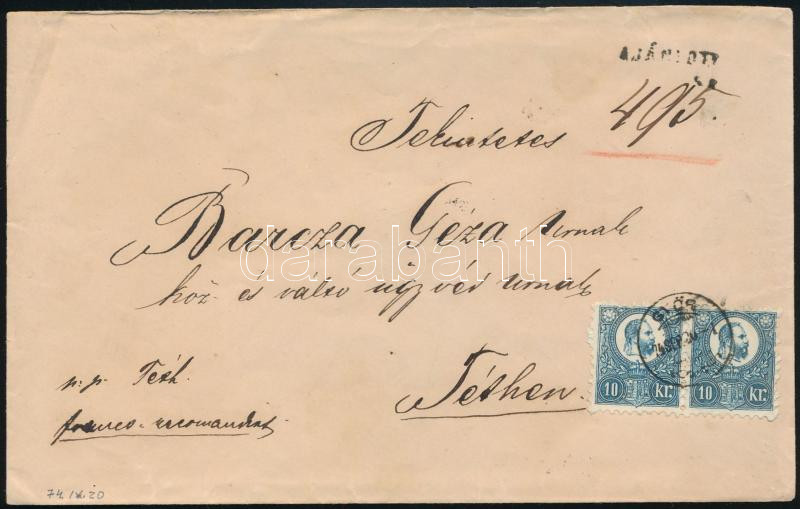 AJÁNLOTT
495.
Tekintetes
Barcza Géza Urnak
köz és váltó ügyvéd Urnak
Téthen
p.p. Téth.
franco-recomandirt
10 Kr. 10 Kr.
GYŐR
74.IX.20
darabanth